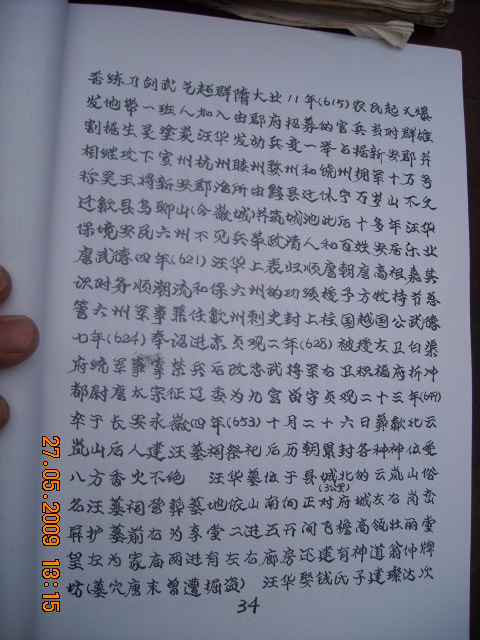 苦练刀剑武艺超群隋大业11年(615)农民起义爆
发地带一班人加入由郡府招募的官兵当时群雄
割据生灵塗炭汪华发动兵变一举占据新安郡并
相继攻下宣州杭州睦州婺州和饶州拥军十万号
称吴王将新安郡治所由黟县迁休宁万岁山不久
迁歙县乌聊山(今徽城)并筑城池此后十多年汪华
保境安民六州不见兵革政清人和百姓安居乐业
唐武德四年(621)汪华上表归顺唐朝唐高祖嘉其
识时务顺潮流和保六州的功绩授予方牧持节总
管六州军事兼任歙州刺史封上柱国越国公武德
七年(624)奉诏进京贞观二年(628)被授左卫白渠
府统军事掌禁兵后改忠武将军右卫积福府折冲
都尉唐太宗征辽委为九宫留守贞观二十三年(649)
卒于长安永徽四年(653)十月二十六日葬歙北云
岚山后人建汪墓祠祭祀后历朝累封各种神位受
八方香火不绝 汪华墓位于县城北的云岚山俗
(3公里)
名汪墓祠营葬墓地依山南向正对府城左右岗峦
屏护墓前右为享堂二进五开间飞檐高翎壮丽堂
望左为家庙两进有左右廊房还建有神道翁仲牌
坊(墓穴唐末曾遭掘盗) 汪华娶钱氏子建璨达次
34
27.05.2009 13:15